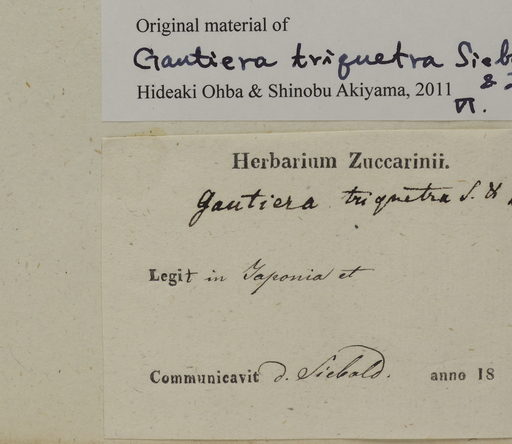 Original material of
Gautiera triquetra Sieb
&
Hideaki Ohba & Shinobu Akiyama, 2011
VI.
Herbarium Zuccarinii.
Gautiera triquetra S. &
Legit in Japonia et
Communicavit d. Siebold. anno 18